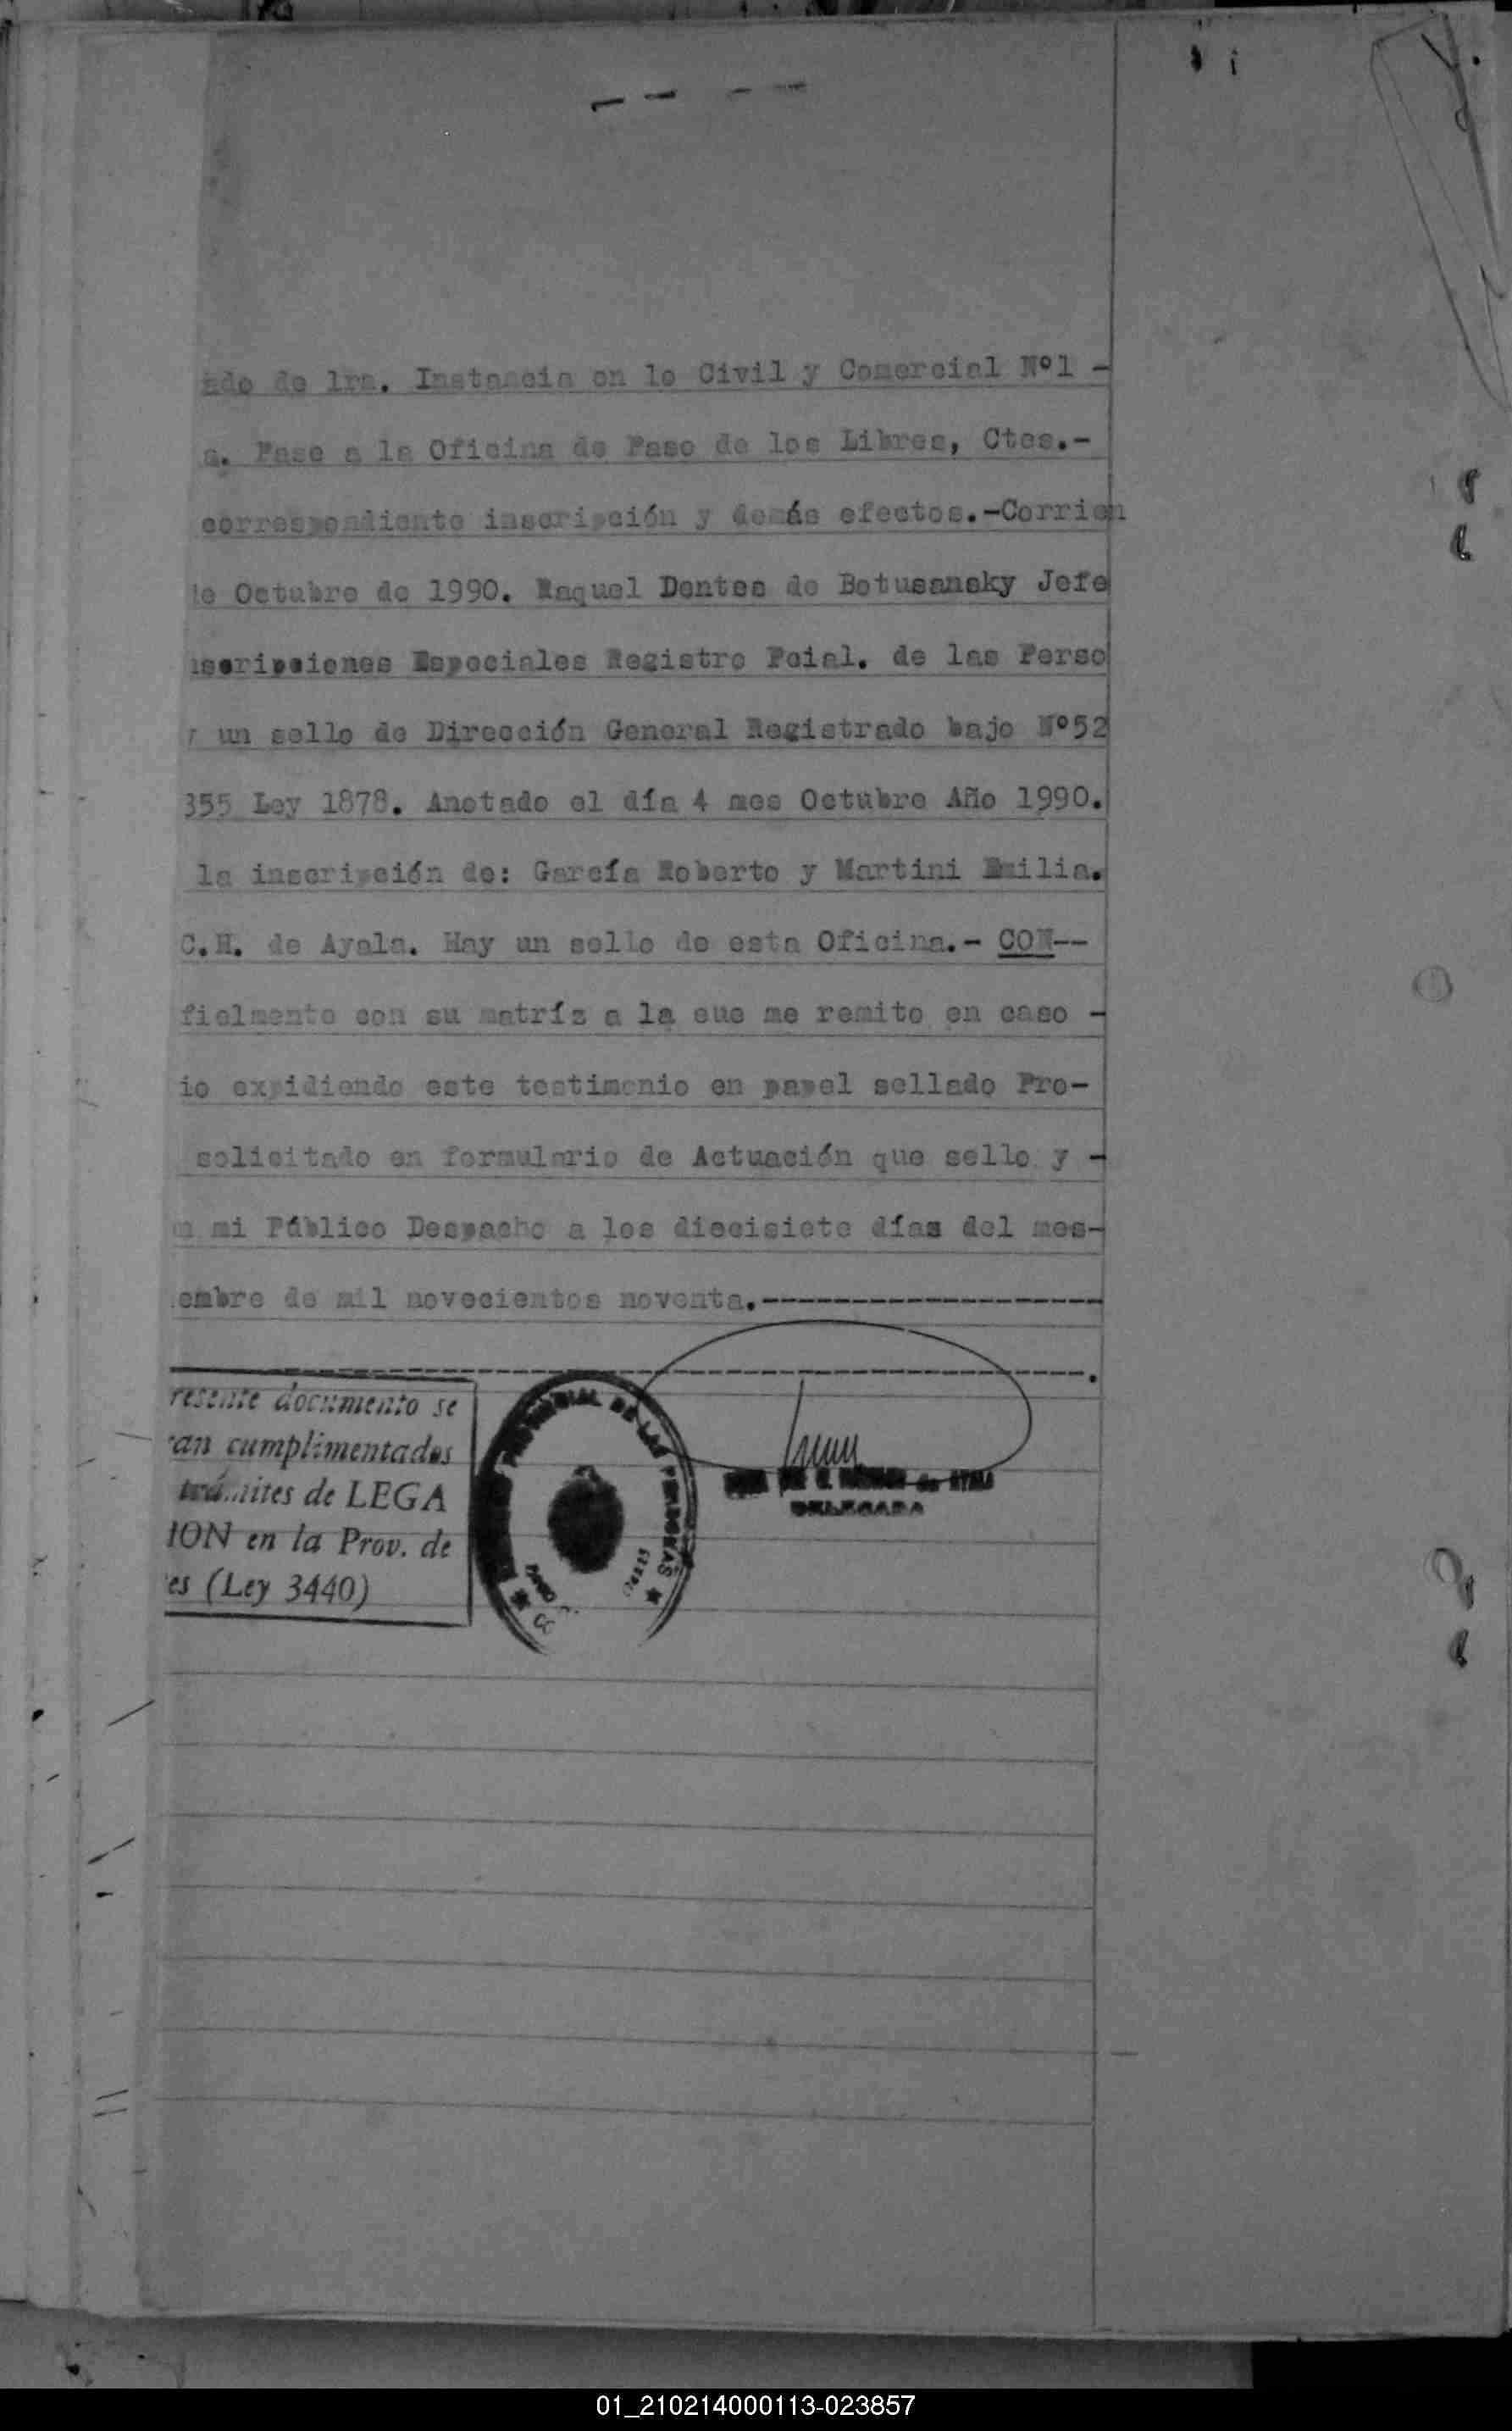 ado de 1ra. Instancia en lo Civil y Comercial Nº1 -
a. Pase a la Oficina de Paso de los Libres, Ctes.-
correspondiente inscripción y demás efectos.-Corrien
de Octubre de 1990. Raquel Dentes de Botusansky Jefe
nscripciones Especiales Registro Pcial. de las Perso
y un sello de Dirección General Registrado bajo Nº52
355 Ley 1878. Anotado el día 4 mes Octubre Año 1990.
la inscripción de: García Roberto y Martini Emilia.
C.H. de Ayala. Hay un sello de esta Oficina.- CON--
fielmente con su matríz a la que me remito en caso -
io expidiendo este testimonio en papel sellado Pro-
solicitado en formulario de Actuación que sello y -
n mi Público Despacho a los diecisiete días del mes-
embre de mil novecientos noventa.-------------------
resente documento se
ran cumplimentados
trámites de LEGA
ION en la Prov. de
es (Ley 3440)
PROVINCIAL DE LAS PERSONAS
de AYALA
DELEGADA
01_210214000113-023857